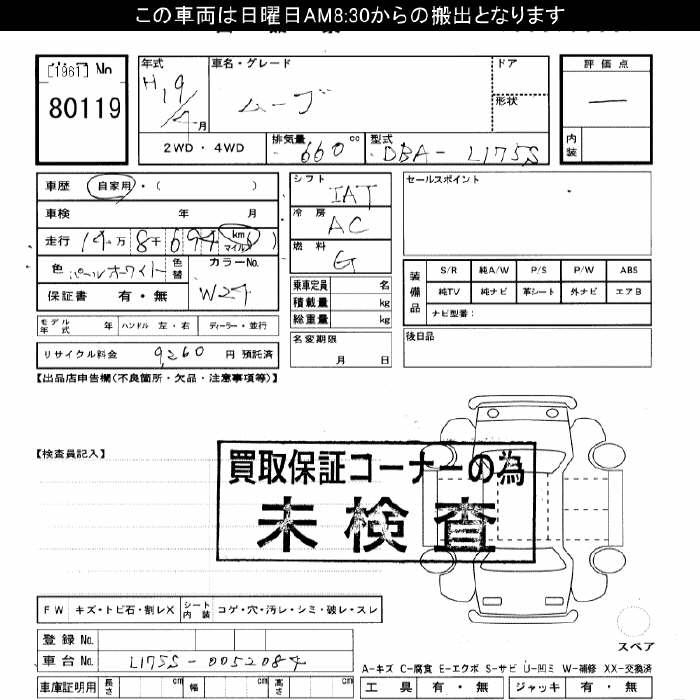 この車両は日曜日AM8:30からの搬出となります
[1961] No
80119
年式
H19/4月
車名・グレード
ムーブ
ドア
形状
評価点
―
内装
2WD・4WD
排気量 660 cc
型式 DBA- L175S
車歴 自家用・( )
車検 年 月
走行 14万8千694 km マイル
色 パールホワイト 色替
カラーNo.
W24
保証書 有・無
シフト IAT
冷房 AC
燃料 G
乗車定員 名
積載量 kg
総重量 kg
セールスポイント
装備品
S/R 純A/W P/S P/W ABS
純TV 純ナビ 革シート 外ナビ エアB
ナビ型番:
モデル年式 年 ハンドル 左・右 ディーラー・並行
リサイクル料金 9,260 円 預託済
名変期限
月 日
後日品
【出品店申告欄(不良箇所・欠品・注意事項等)】
【検査員記入】
買取保証コーナーの為
未検査
FW キズ・トビ石・割レX シート内装 コゲ・穴・汚レ・シミ・破レ・スレ
登録No.
車台No. L175S-0052084
車庫証明用 長さ cm 幅 cm 高さ cm
スペア
A-キズ C-腐食 E-エクボ S-サビ U-凹ミ W-補修 XX-交換済
工具 有・無 ジャッキ 有・無